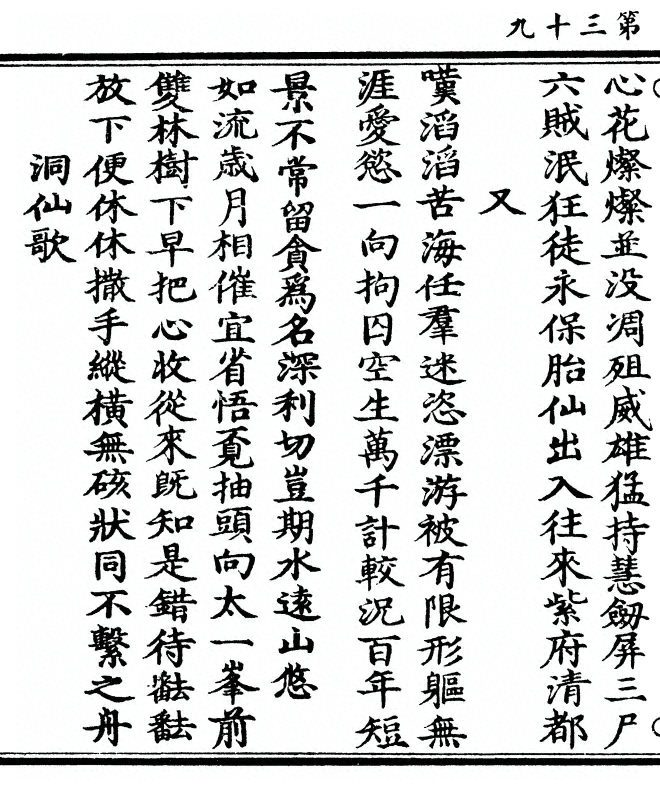 第三十九
心花燦燦並没凋殂威雄猛持慧劔屏三尸
六賊泯狂徒永保胎仙出入往來紫府清都
又
嘆滔滔苦海任羣迷恣漂游被有限形軀無
涯愛慾一向拘囚空生萬千計較況百年短
景不常留貪爲名深利切豈期水遠山悠
如流歳月相催宜省悟覔抽頭向太一峯前
雙林樹下早把心收從來既知是錯待
放下便休休撒手縱橫無礙狀同不繫之舟
洞仙歌